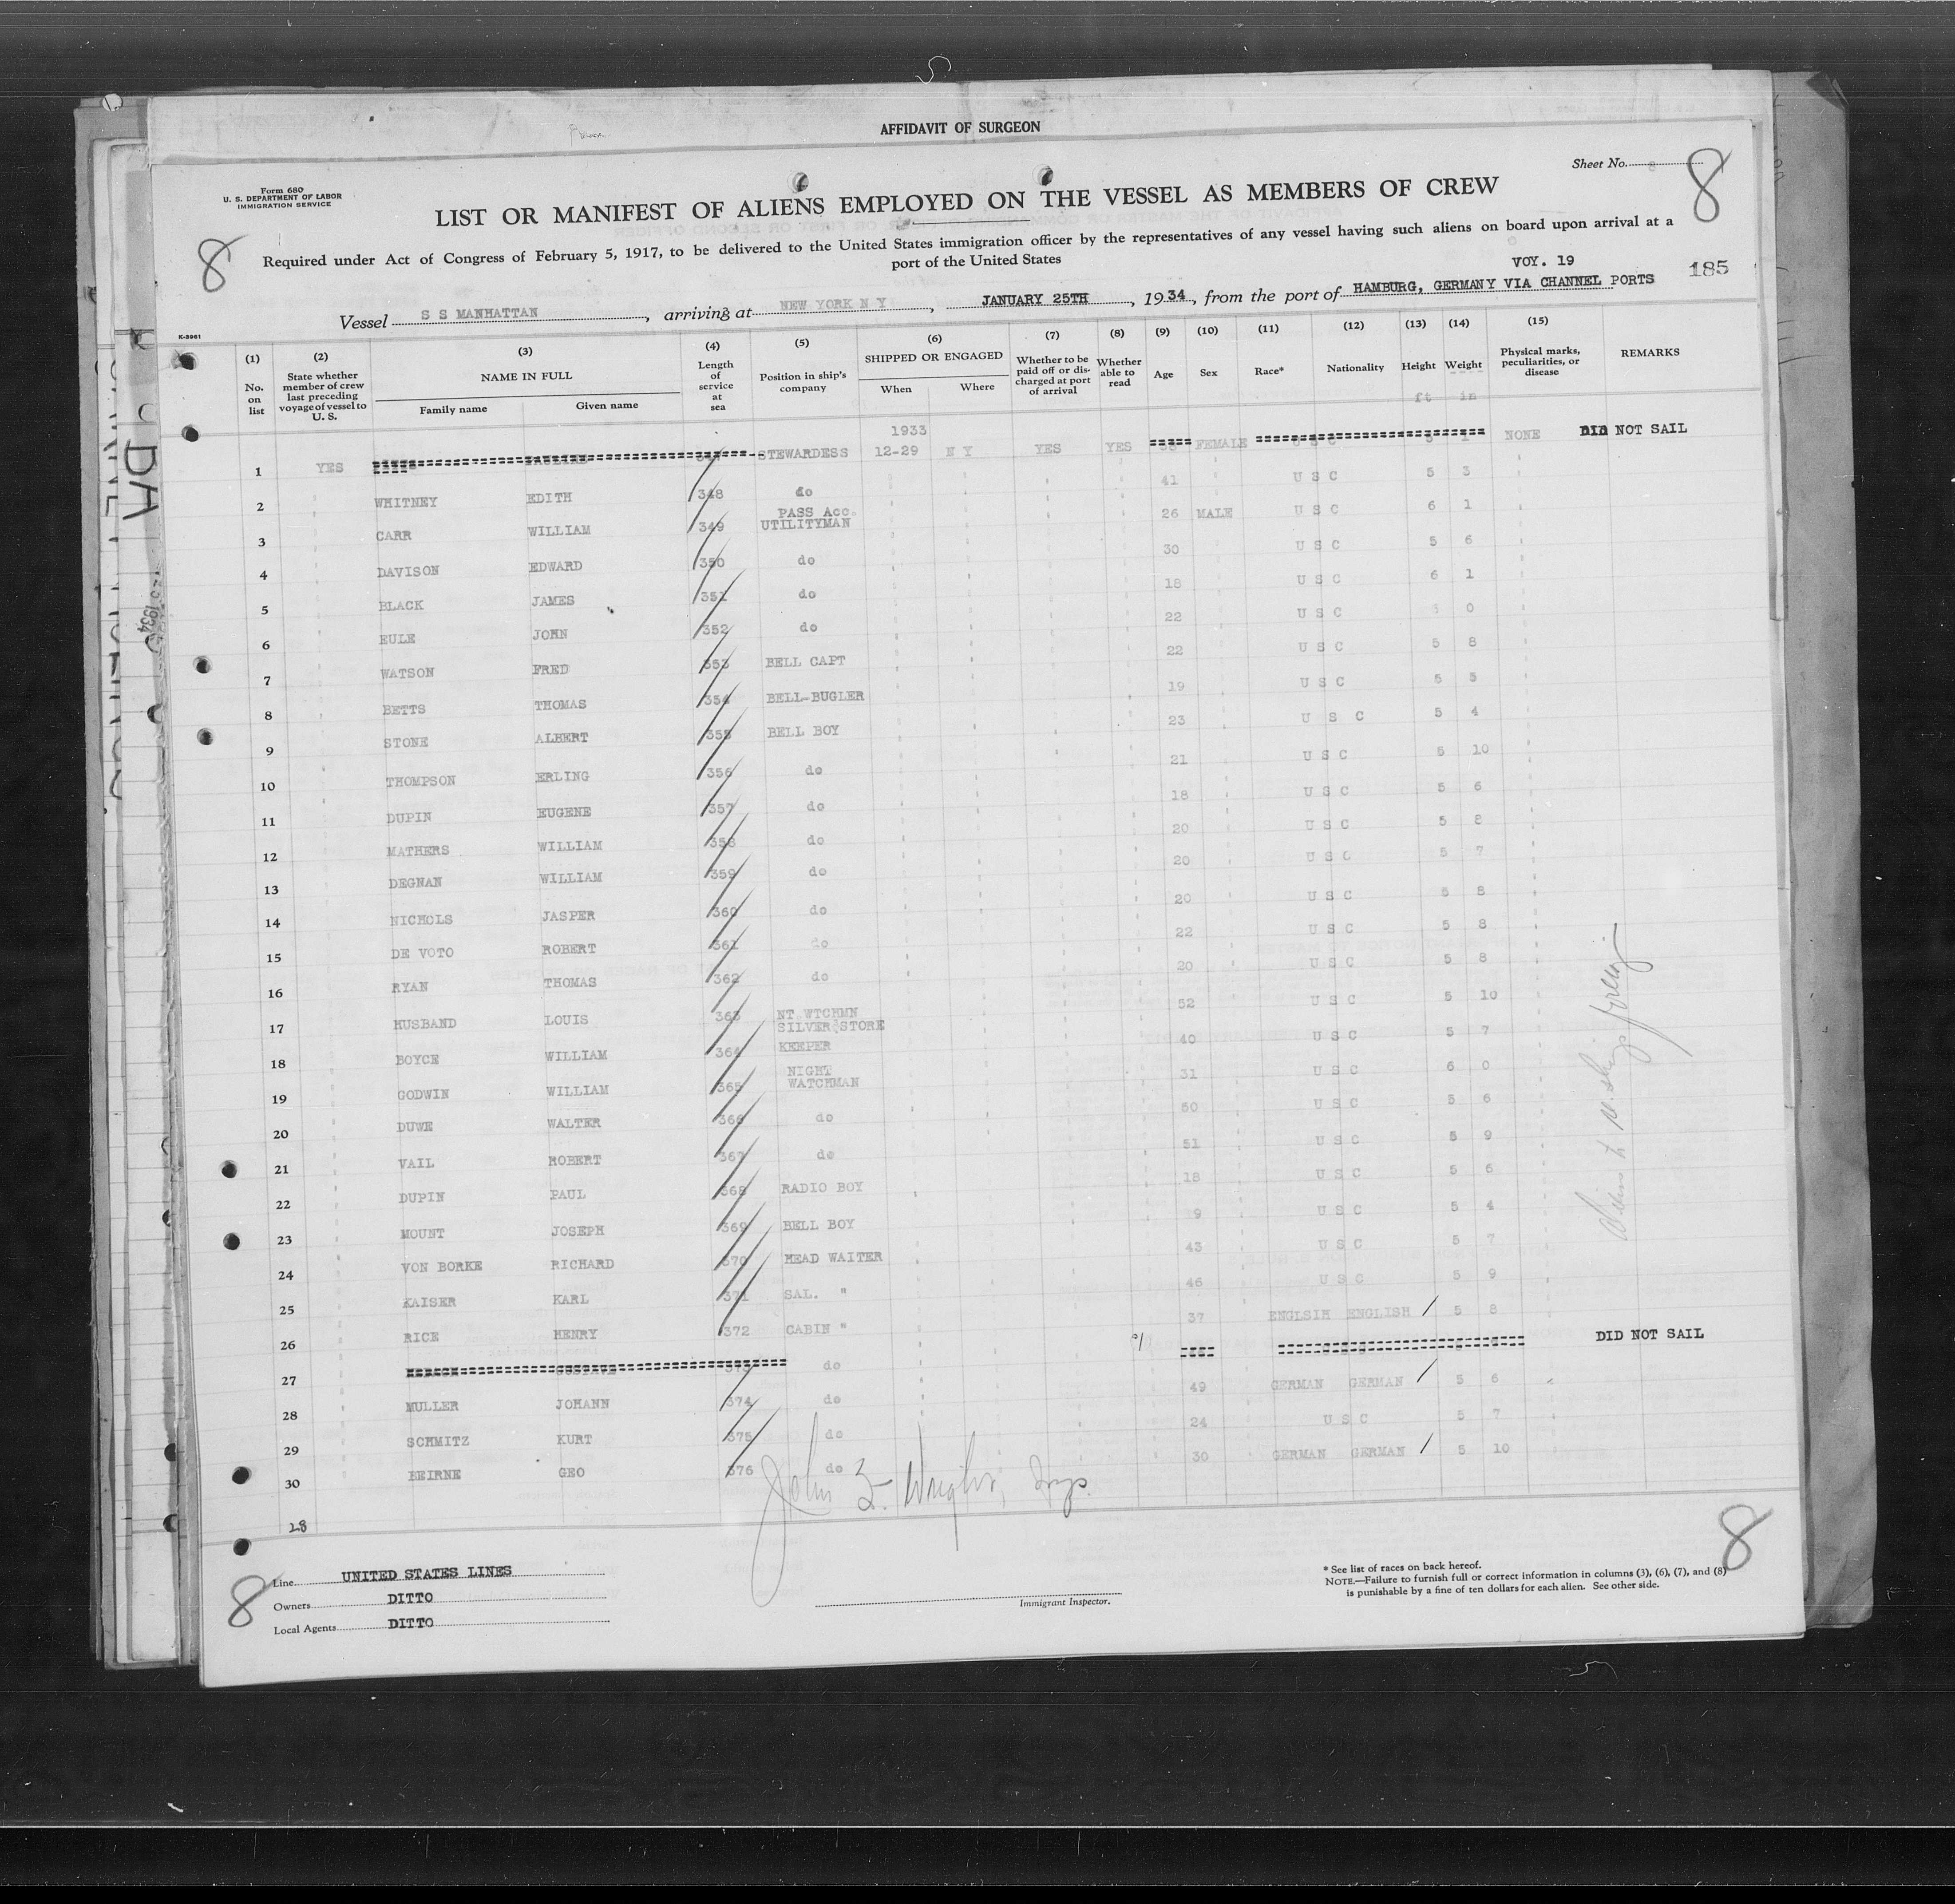 AFFIDAVIT OF SURGEON
Form 680
U. S. DEPARTMENT OF LABOR
IMMIGRATION SERVICE
Sheet No. 8
8
8
LIST OR MANIFEST OF ALIENS EMPLOYED ON THE VESSEL AS MEMBERS OF CREW
Required under Act of Congress of February 5, 1917, to be delivered to the United States immigration officer by the representatives of any vessel having such aliens on board upon arrival at a
port of the United States
VOY. 19
185
Vessel S S MANHATTAN, arriving at NEW YORK N Y, JANUARY 25TH, 1934, from the port of HAMBURG, GERMANY VIA CHANNEL PORTS
K-3961
(1) No. on list
(2) State whether member of crew last preceding voyage of vessel to U. S.
(3) NAME IN FULL Family name Given name
(4) Length of service at sea
(5) Position in ship's company
(6) SHIPPED OR ENGAGED When Where
(7) Whether to be paid off or discharged at port of arrival
(8) Whether able to read
(9) Age
(10) Sex
(11) Race*
(12) Nationality
(13) Height
(14) Weight
(15) Physical marks, peculiarities, or disease
REMARKS
ft in
1933
1 YES STEWARDESS 12-29 N Y YES YES FEMALE U S C NONE DID NOT SAIL
2 WHITNEY EDITH 348 do 41 U S C 5 3
3 CARR WILLIAM 349 PASS Acc. UTILITYMAN 26 MALE U S C 6 1
4 DAVISON EDWARD 350 do 30 U S C 5 6
5 BLACK JAMES 351 do 18 U S C 6 1
6 EULE JOHN 352 do 22 U S C 0
7 WATSON FRED 353 BELL CAPT 22 U S C 5 8
8 BETTS THOMAS 354 BELL-BUGLER 19 U S C 5 5
9 STONE ALBERT 355 BELL BOY 23 U S C 5 4
10 THOMPSON ERLING 356 do 21 U S C 5 10
11 DUPIN EUGENE 357 do 18 U S C 5 6
12 MATHERS WILLIAM 358 do 20 U S C 5 8
13 DEGNAN WILLIAM 359 do 20 U S C 5 7
14 NICHOLS JASPER 360 do 20 U S C 5 8
15 DE VOTO ROBERT 361 do 22 U S C 5 8
16 RYAN THOMAS 362 do 20 U S C 5 8
17 HUSBAND LOUIS 363 NT WTCHMN 52 U S C 5 10
18 BOYCE WILLIAM 364 SILVER STORE KEEPER 40 U S C 5 7
19 GODWIN WILLIAM 365 NIGHT WATCHMAN 31 U S C 6 0
20 DUWE WALTER 366 do 50 U S C 5 6
21 VAIL ROBERT 367 do 51 U S C 5 9
22 DUPIN PAUL 368 RADIO BOY 18 U S C 5 6
23 MOUNT JOSEPH 369 BELL BOY 9 U S C 5 4
24 VON BORKE RICHARD 370 HEAD WAITER 43 U S C 5 7
25 KAISER KARL 371 SAL. " 46 U S C 5 9
26 RICE HENRY 372 CABIN " 37 ENGLSIH ENGLISH 5 8
27 373 do DID NOT SAIL
28 MULLER JOHANN 374 do 49 GERMAN GERMAN 5 6
29 SCHMITZ KURT 375 do 24 U S C 5 7
30 BEIRNE GEO 376 do 30 GERMAN GERMAN 5 10
28
John Wright, Insp.
Immigrant Inspector.
8
8
Line UNITED STATES LINES
Owners DITTO
Local Agents DITTO
* See list of races on back hereof.
NOTE.—Failure to furnish full or correct information in columns (3), (6), (7), and (8)
is punishable by a fine of ten dollars for each alien. See other side.